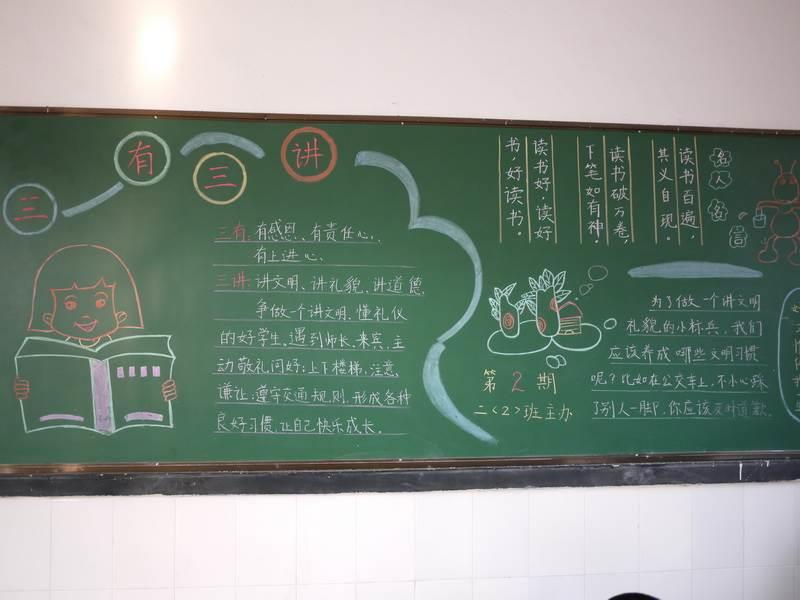 三有三讲
三有:有感恩、有责任心、
有上进心。
三讲:讲文明、讲礼貌、讲道德.
争做一个讲文明、懂礼仪
的好学生,遇到师长、来宾,主
动敬礼问好;上下楼梯,注意
谦让,遵守交通规则,形成各种
良好习惯,让自己快乐成长。
读书好,读好
书,好读书。
读书破万卷,
下笔如有神.
读书百遍,
其义自现。
名人名言
第2期
二〈2〉班主办
为了做一个讲文明
礼貌的小标兵,我们
应该养成哪些文明习惯
呢?比如在公交车上,不小心踩
了别人一脚,你应该及时道歉